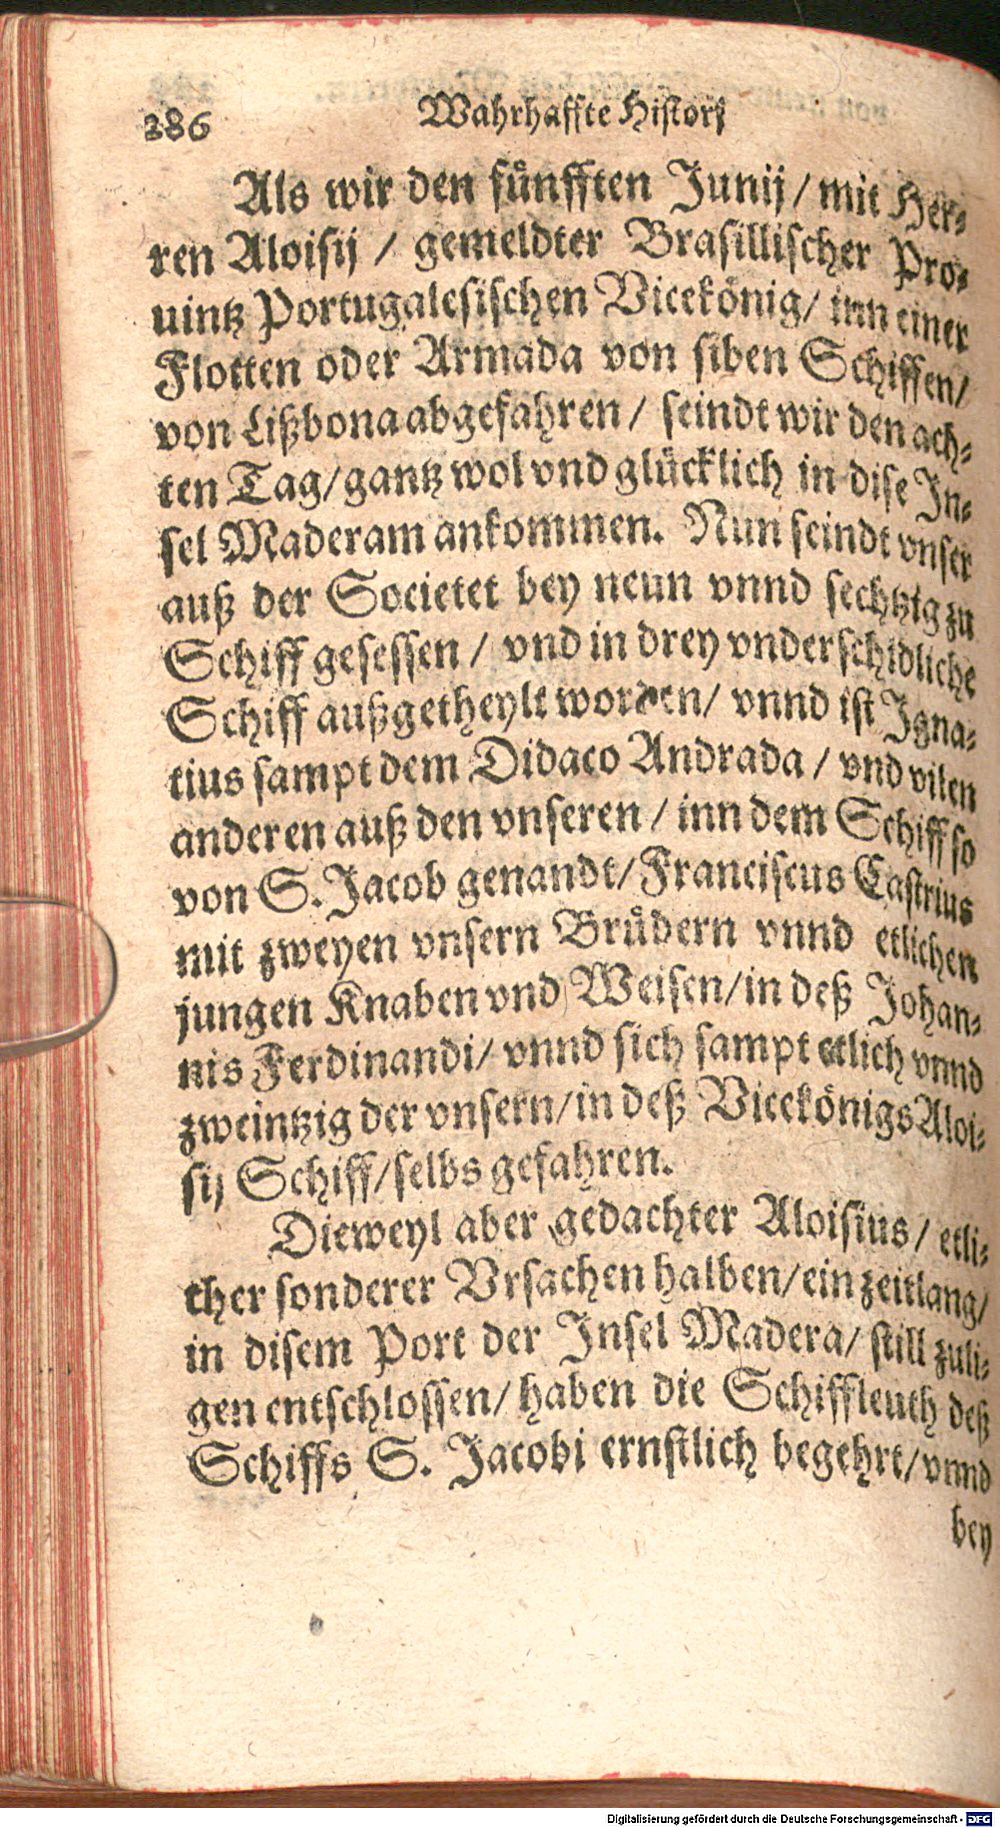 286 Wahrhaffte Histori
Als wir den fünfften Junij / mit Her-
ren Aloisij / gemeldter Brasillischer Pro-
uintz Portugalesischen Vicekönig / inn einer
Flotten oder Armada von siben Schiffen /
von Lißbona abgefahren / seindt wir den ach-
ten Tag / gantz wol vnd glücklich in dise In-
sel Maderam ankommen. Nun seindt vnser
auß der Societet bey neun vnnd sechtzig zu
Schiff gesessen / vnd in drey vnderschidliche
Schiff außgetheylt worden / vnnd ist Igna-
tius sampt dem Didaco Andrada / vnd vilen
anderen auß den vnseren / inn dem Schiff so
von S. Jacob genandt / Franciscus Castrius
mit zweyen vnsern Brüdern vnnd etlichen
jungen Knaben vnd Weisen / in deß Johan-
nis Ferdinandi / vnnd sich sampt etlich vnnd
zweintzig der vnsern / in deß Vicekönigs Aloi-
sij Schiff / selbs gefahren.
Dieweyl aber gedachter Aloisius / etli-
cher sonderer Vrsachen halben / ein zeitlang /
in disem Port der Insel Madera / still zuli-
gen entschlossen / haben die Schiffleuth deß
Schiffs S. Jacobi ernstlich begehrt / vnnd
bey
Digitalisierung gefördert durch die Deutsche Forschungsgemeinschaft - DFG